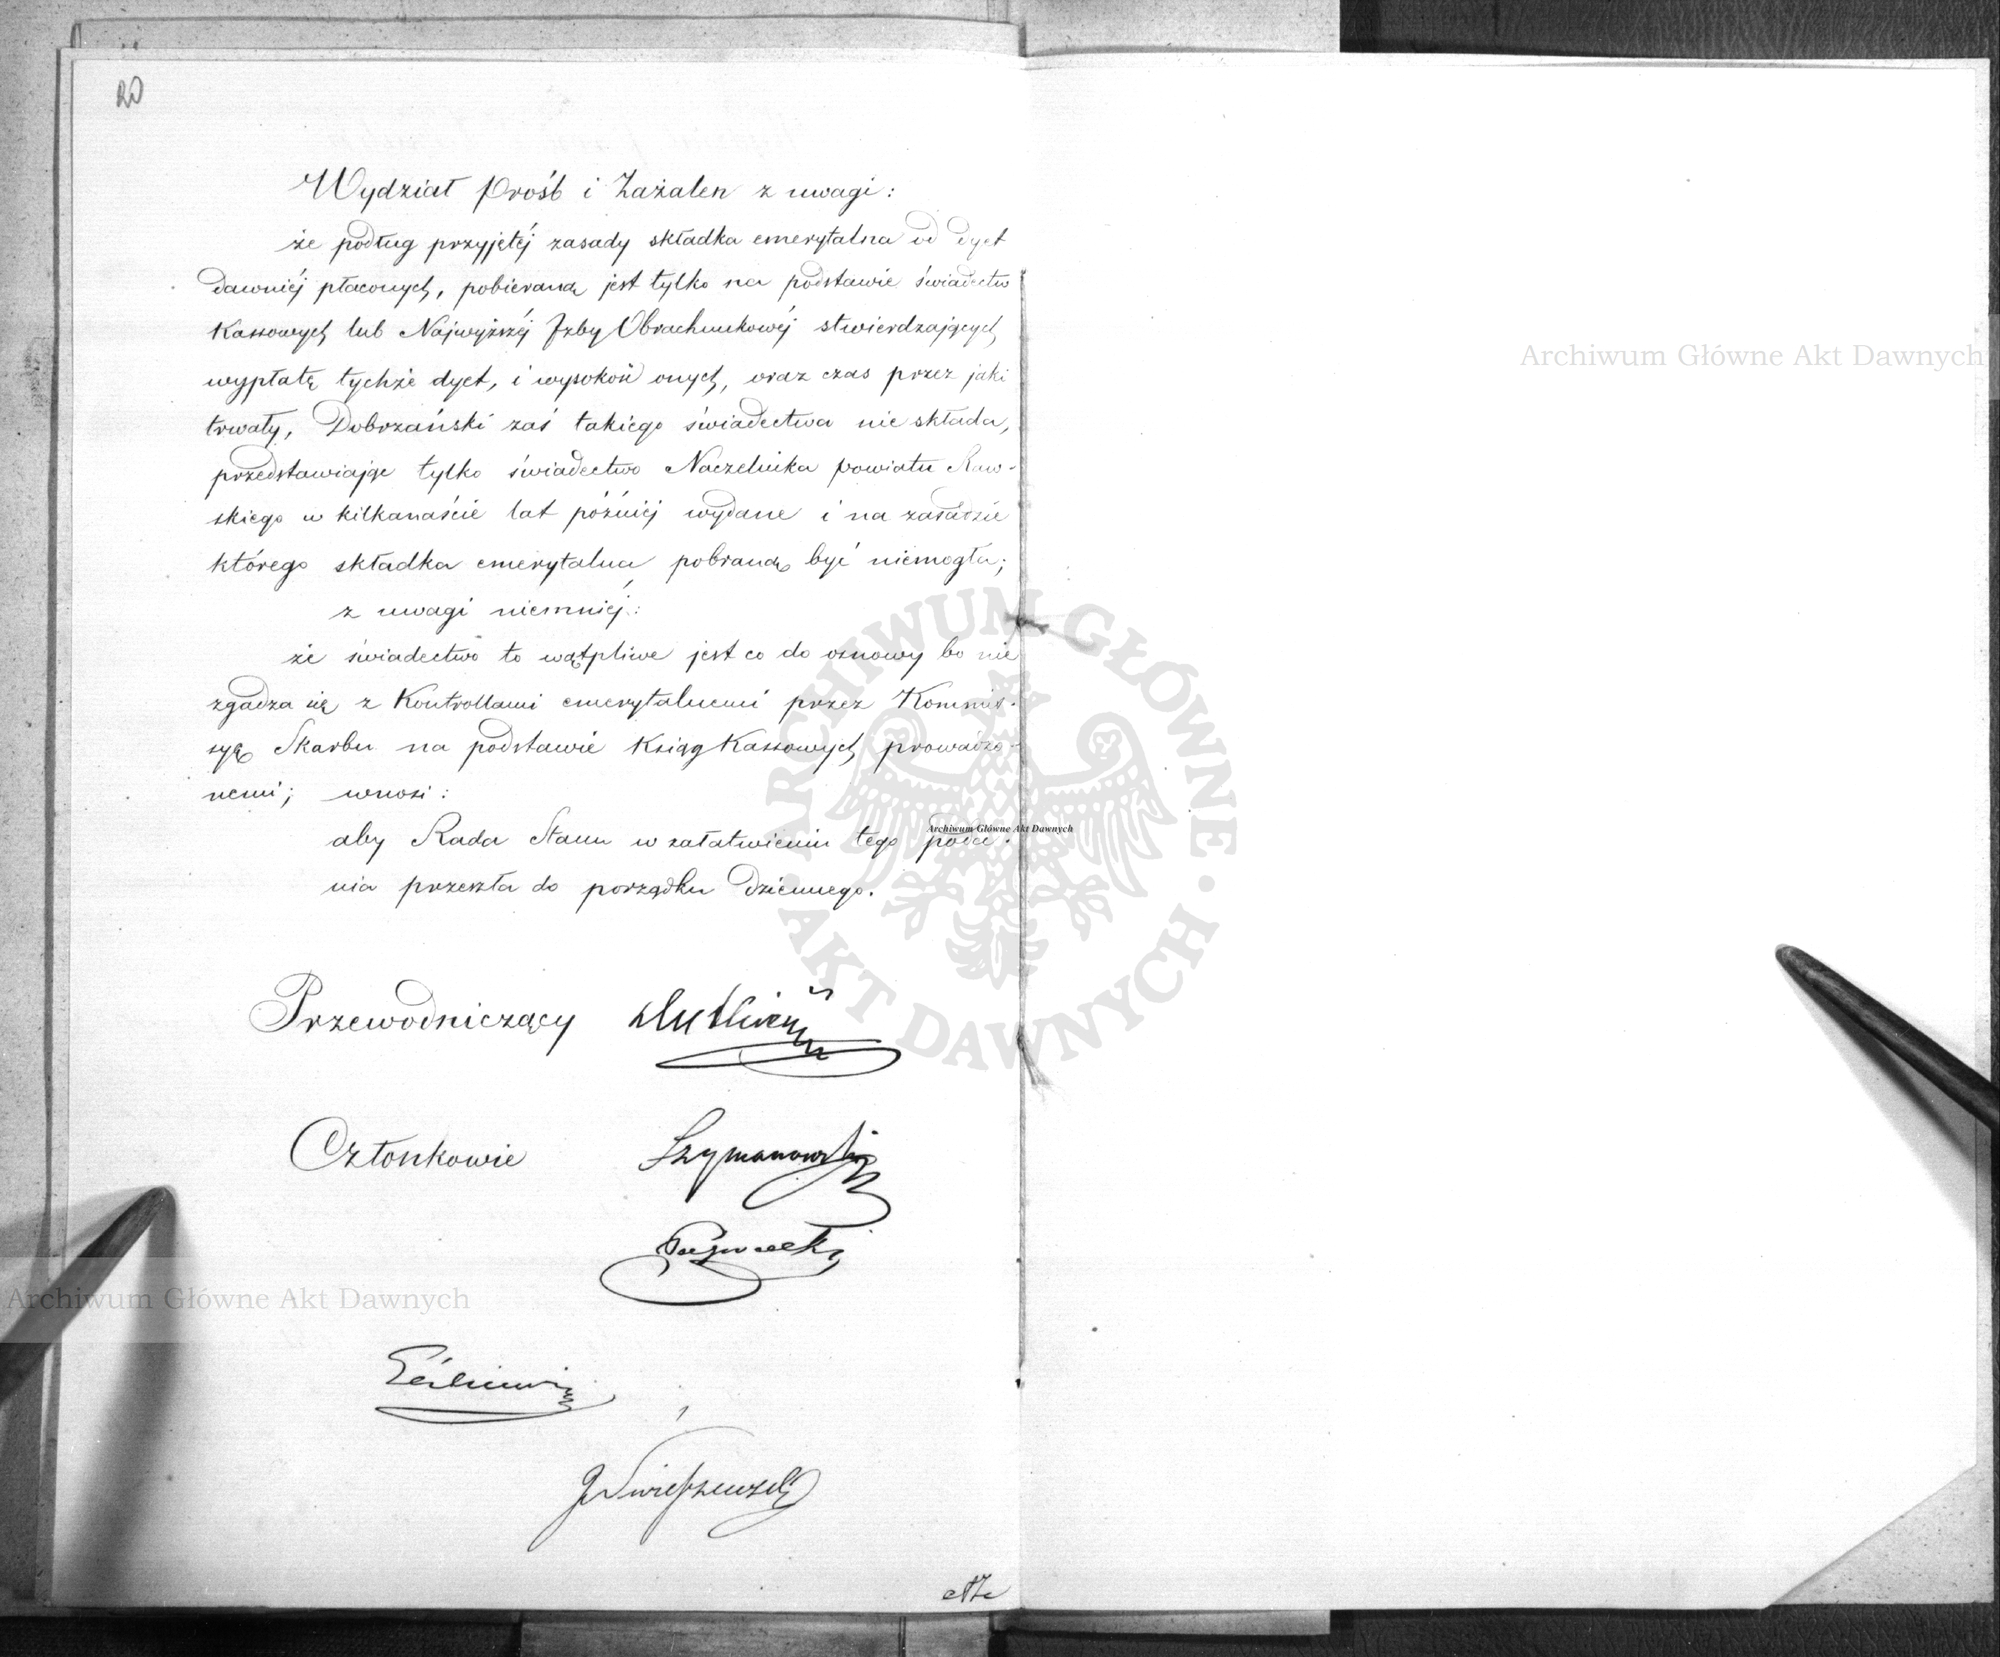 20
Wydział Próśb i Zażaleń z uwagi:
że podług przyjętéj zasady składka emerytalna od dyet
dawniéj płaconych, pobieraną jest tylko na podstawie świadectw
Kassowych lub Najwyższéj Izby Obrachunkowéj stwierdzających
wypłatę tychże dyet, i wysokość onych, oraz czas przez jaki
trwały, Dobrzański zaś takiego świadectwa nie składa,
przedstawiając tylko świadectwo Naczelnika powiatu Raw-
skiego w kilkanaście lat późniéj wydane i na zasadzie
którego składka emerytalna pobraną być niemogła;
z uwagi niemniéj:
że świadectwo to wątpliwe jest co do osnowy bo nie
zgadza się z Kontrollami emerytalnemi przez Kommis-
syą Skarbu na podstawie Ksiąg Kassowych prowadzo-
nemi; wnosi:
aby Rada Stanu w załatwieniu tego poda-
nia przeszła do porządku dziennego.
Przewodniczący
Członkowie Szymanowski
Archiwum Główne Akt Dawnych
Archiwum Główne Akt Dawnych
Archiwum Główne Akt Dawnych
ARCHIWUM GŁÓWNE
AKT DAWNYCH